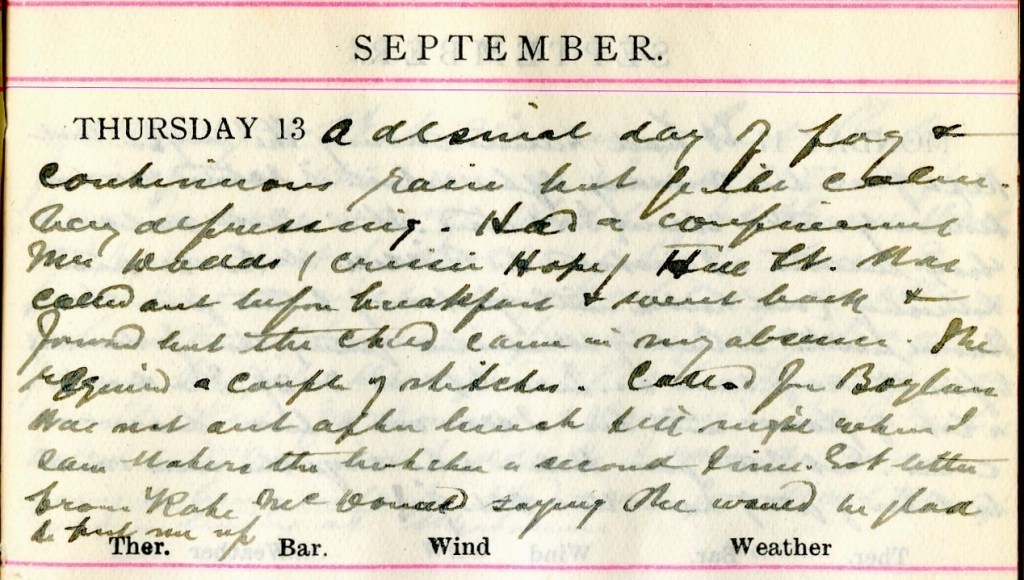 SEPTEMBER.
THURSDAY 13 A dismal day of fog &
continuous rain but
very depressing. Had a confinement
Mrs Wadds (Cressie Hope) Hill St. Was
called out before breakfast & went back &
forward but the child came in my absence. She
required a couple of stitches. Called Joe Boylan
Was not out after lunch till night when I
saw the butcher a second time. Got letter
from Kate McDonald saying she would be glad
to put me up
Ther. Bar. Wind Weather